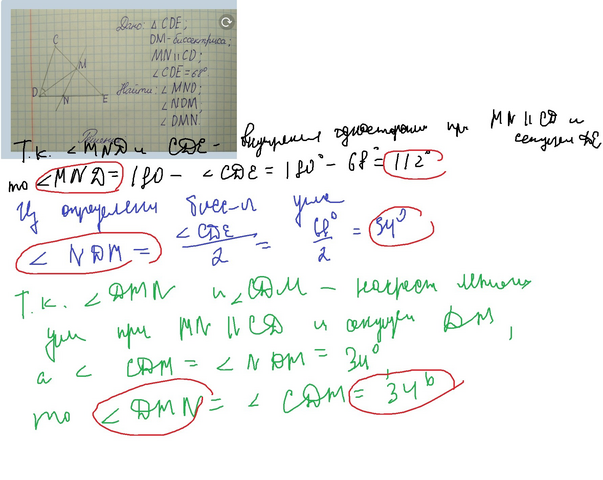 Дано: △ CDE;
DM-биссектриса;
MN || CD;
∠CDE = 68°
Найти: ∠MND;
∠NDM;
∠DMN.
C
M
D
N
E
Т.к. ∠MND и CDE - внутрение односторонн при MN || CD и
секущей DE
то ∠MND = 180 - ∠CDE = 180° - 68° = 112°
Из определени бисс-и угла
∠ NDM = ∠CDE/2 = 68°/2 = 34°
Т.к. ∠DMN и ∠CDM - накрест лежащ
угли при MN || CD и секущей DM,
а ∠ CDM = ∠NDM = 34°
то ∠DMN = ∠ CDM = 34°